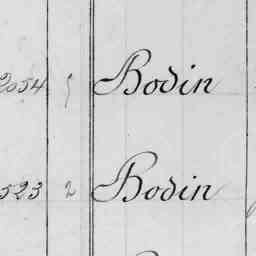 2054 5 Bodin
523 2 Bodin